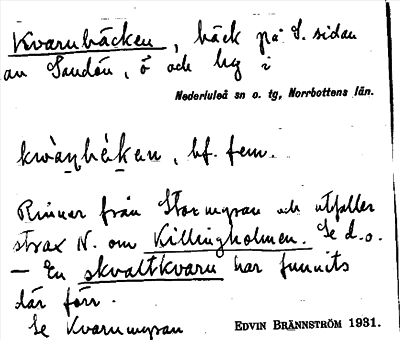 Kvarnbäcken, bäck på S. sidan
av Sandön, ö och by i
Nederluleå sn o. tg, Norrbottens län.
bf. fem.
Rinner från Stormyran och utfaller
strax N. om Killingholmen. Se d.o.
— En skvaltkvarn har funnits
där förr.
Se Kvarnmyran
EDVIN BRÄNNSTRÖM 1931.